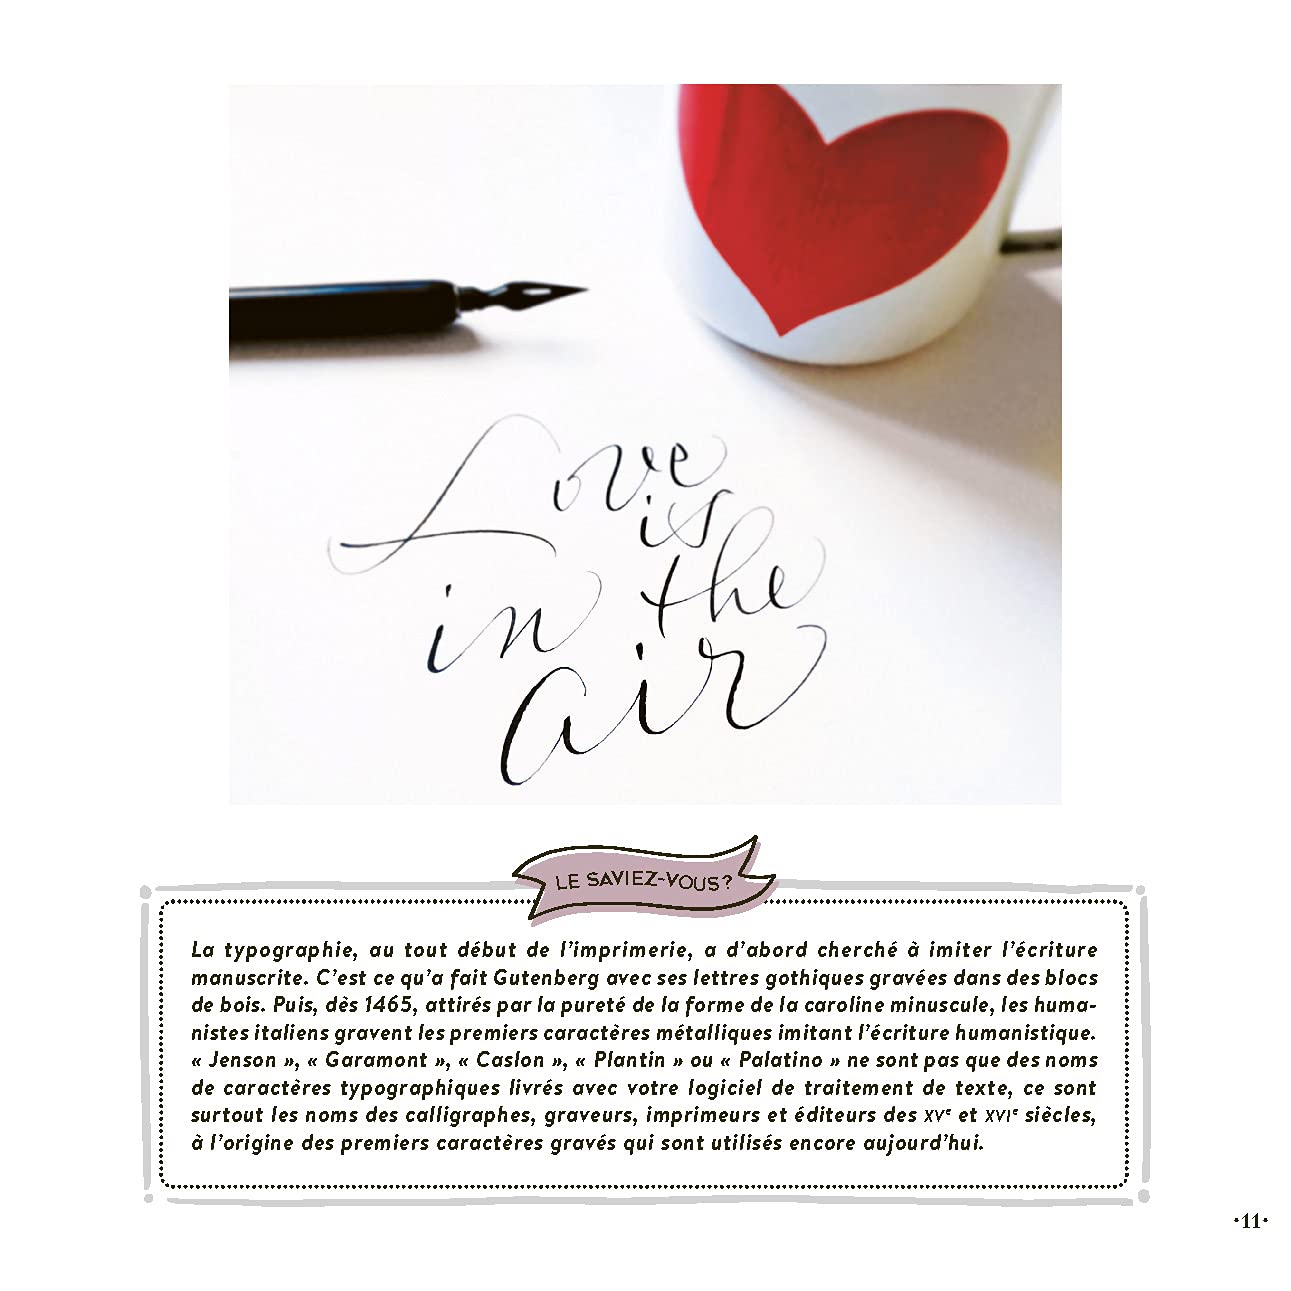 Love
is
in the
air
LE SAVIEZ-VOUS?
La typographie, au tout début de l'imprimerie, a d'abord cherché à imiter l'écriture
manuscrite. C'est ce qu'a fait Gutenberg avec ses lettres gothiques gravées dans des blocs
de bois. Puis, dès 1465, attirés par la pureté de la forme de la caroline minuscule, les huma-
nistes italiens gravent les premiers caractères métalliques imitant l'écriture humanistique.
« Jenson », « Garamont », « Caslon », « Plantin » ou « Palatino » ne sont pas que des noms
de caractères typographiques livrés avec votre logiciel de traitement de texte, ce sont
surtout les noms des calligraphes, graveurs, imprimeurs et éditeurs des XVe et XVIe siècles,
à l'origine des premiers caractères gravés qui sont utilisés encore aujourd'hui.
·11·